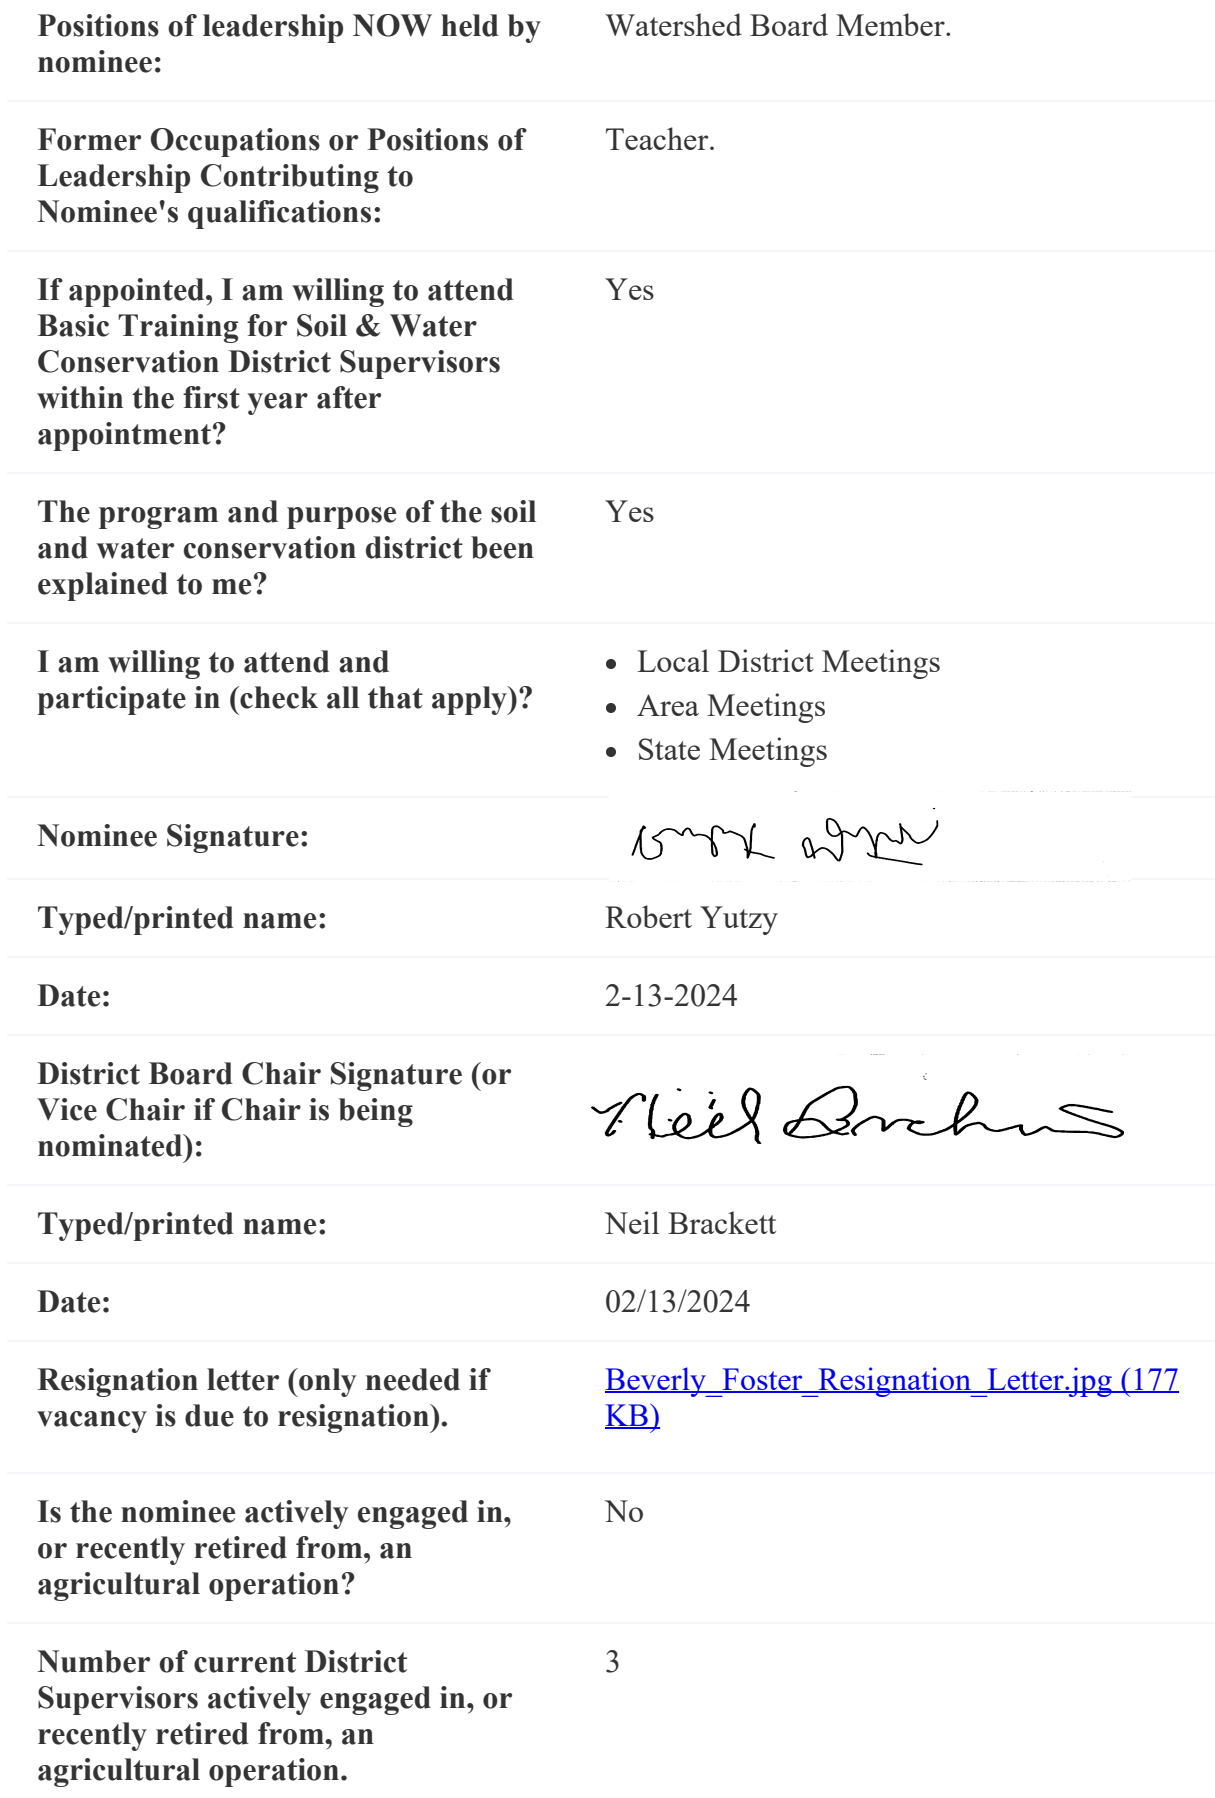 Positions of leadership NOW held by
nominee:
Watershed Board Member.
Former Occupations or Positions of
Leadership Contributing to
Nominee's qualifications:
Teacher.
If appointed, I am willing to attend
Basic Training for Soil & Water
Conservation District Supervisors
within the first year after
appointment?
Yes
The program and purpose of the soil
and water conservation district been
explained to me?
Yes
I am willing to attend and
participate in (check all that apply)?
• Local District Meetings
• Area Meetings
• State Meetings
Nominee Signature:
Typed/printed name:
Robert Yutzy
Date:
2-13-2024
District Board Chair Signature (or
Vice Chair if Chair is being
nominated):
Neil
Typed/printed name:
Neil Brackett
Date:
02/13/2024
Resignation letter (only needed if
vacancy is due to resignation).
Beverly_Foster_Resignation_Letter.jpg (177
KB)
Is the nominee actively engaged in,
or recently retired from, an
agricultural operation?
No
Number of current District
Supervisors actively engaged in, or
recently retired from, an
agricultural operation.
3